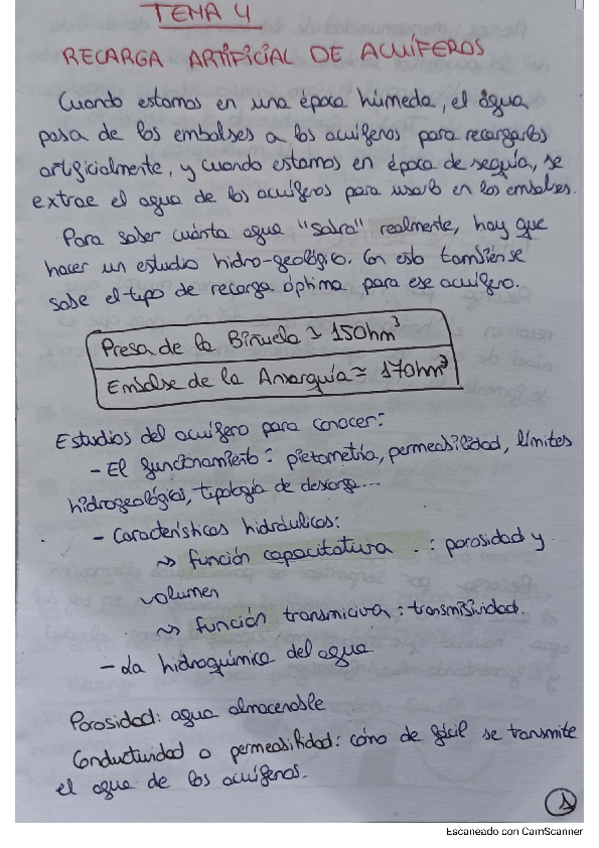 TEMA 4
RECARGA ARTIFICIAL DE ACUÍFEROS
Cuando estamos en una época húmeda, el agua
pasa de los embalses a los acuíferos para recargarlos
artificialmente, y cuando estamos en época de sequía, se
extrae el agua de los acuíferos para usarlo en los embalses.
Para saber cuánta agua "sobra" realmente, hay que
hacer un estudio hidro-geológico. Con esto también se
sabe el tipo de recarga óptima para ese acuífero.
Presa de la Viñuela ≃ 150hm³
Embalse de la Axarquía ≃ 170hm³
Estudios del acuífero para conocer:
- El funcionamiento: piezometría, permeabilidad, límites
hidrogeológicos, tipología de descarga...
- Características hidráulicas:
↝ función capacitativa : porosidad y
volumen
↝ función transmiciva : transmisividad.
- La hidroquímica del agua
Porosidad: agua almacenable
Conductividad o permeabilidad: cómo de fácil se transmite
el agua de los acuíferos.
1
Escaneado con CamScanner